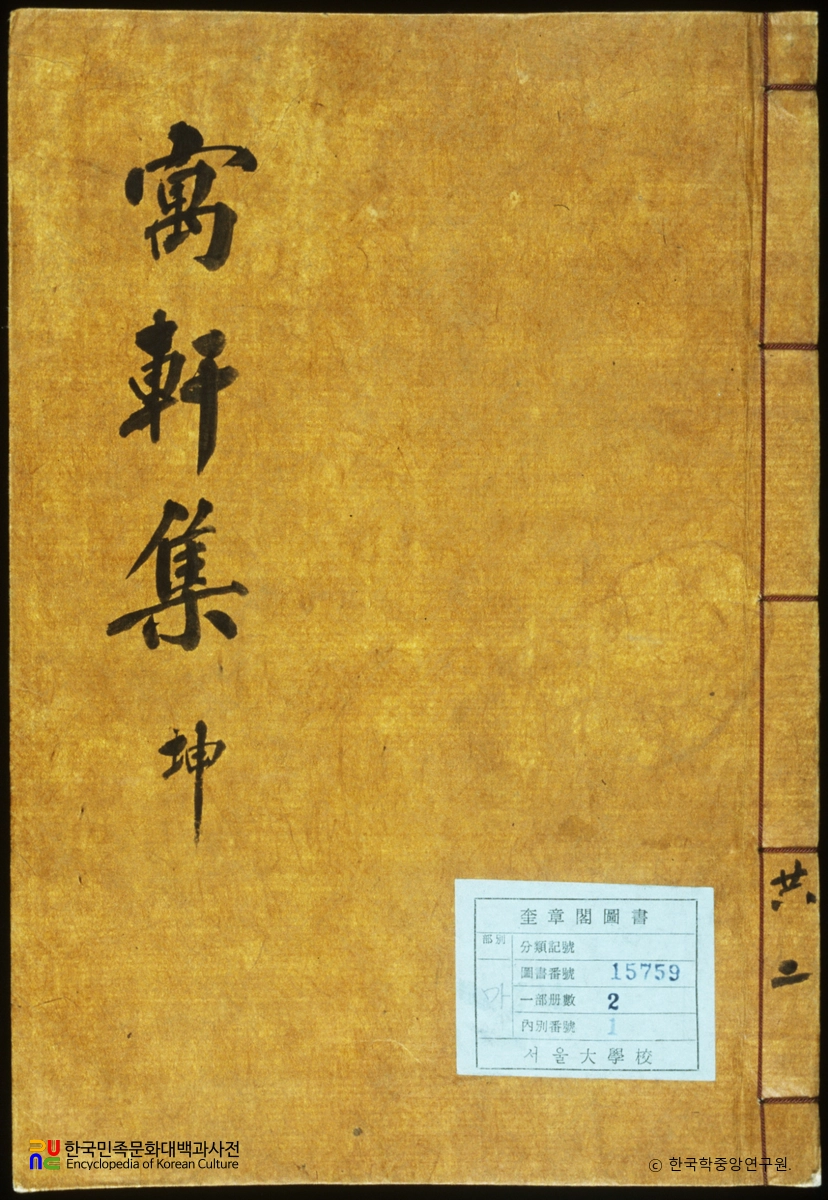 寓軒集 坤
共二
奎章閣圖書
部別
마
分類記號
圖書番號 15759
一部册數 2
內別番號 1
서울大學校
한국민족문화대백과사전
Encyclopedia of Korean Culture
© 한국학중앙연구원.